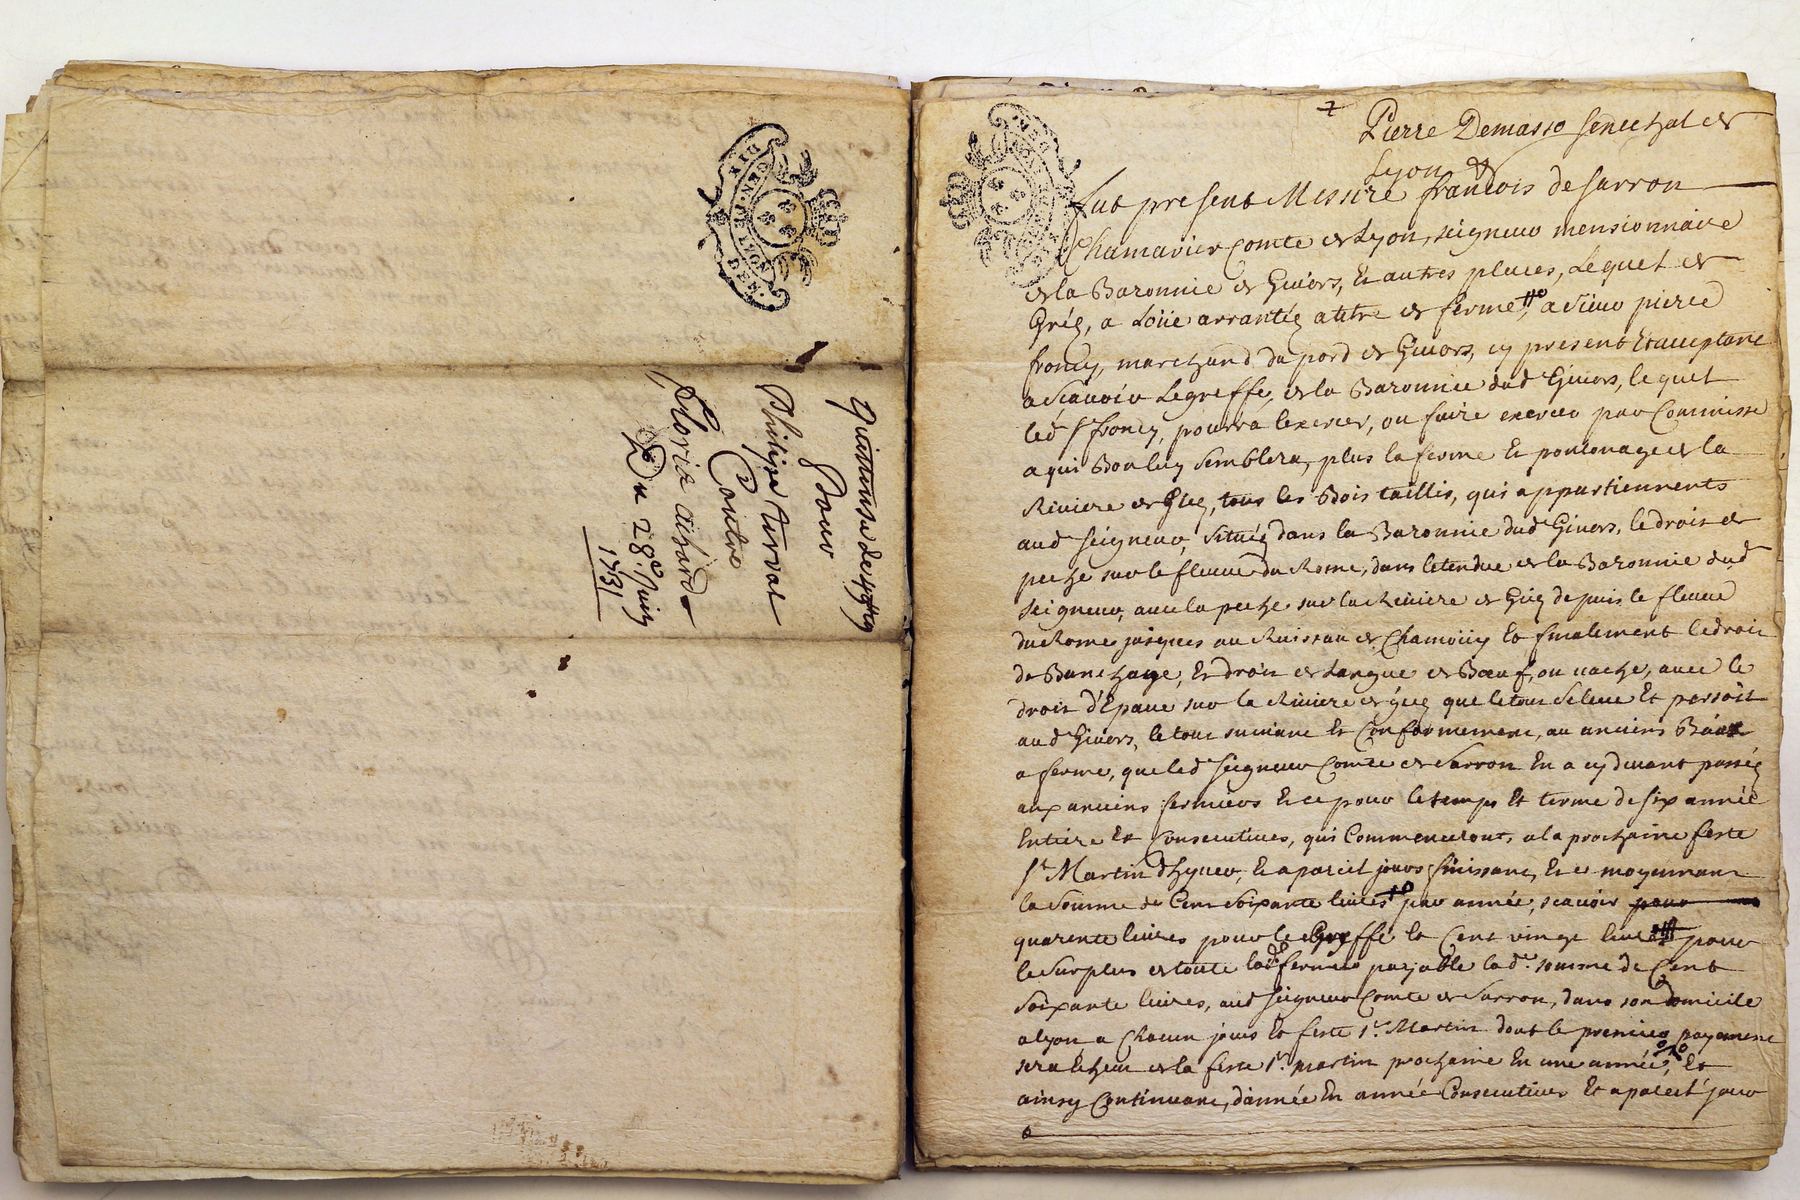 GEN. DE LYON
Pour
Philipe Terval
Contre
Du 28e. Juin
1731
Pierre Demasso Senechal de
Lyon
fut present Messire francois de Sarron
Chamarier Comte de Lyon, seigneur mensionnaire
de la Baronnie de Givors, Et autres places, Lequel de
Gréz, a Loüé arrantéz a titre de ferme, a Sieur pierre
froncy, marchand du pord de Givors, cy present Et acceptant
a Scavoir Le greffe, de la Baronnie dud Givors, lequel
led Sr froncy, pourra lexercer, ou faire exercer par Commisse
a qui Bon luy Semblera, plus la ferme Et pontonage de la
Riviere de Giez, tous les Bois taillis, qui appartiennents
aud Seigneur, Situéz dans la Baronnie dud Givors, le droit de
peche sur le fleuve du Rome, dans letendue de la Baronnie dud
Seigneur, avec la peche sur la Riviere de Giez depuis le fleuve
du Rome jusques au Ruisseau de Et finalement le droit
de Banchage, Et droit de Langue de Bœuf, ou vache, avec le
droit d'Epave sur la Riviere de giez que le tout Se leve Et persoit
aud Givors, le tout suivant Et Conformement, au anciens Baux
a ferme, que led Seigneur Comte de Sarron En a cy devant passéz
aux anciens fermiers Et ce pour le temps Et terme de six année
Entiere Et Consecutives, qui Commenceront, a la prochaine feste
St Martin d'hyver, Et a pareil jours finissant, Et ce moyennant
la Somme de Cent Soixante livres par année, scavoir pour
quarente livres pour le Greffe Et Cent vingt livres pour
le Surplus de toute lade. ferme payable lade. somme de Cent
Soixante livres, aud Seigneur Comte de Sarron, dans son domicile
a lyon a Chacun jours Et feste St. Martin dont le premier payement
sera Echeu de la feste St. martin prochaine En une année, Et
ainsy Continuant, d'année En année Consecutives Et a pareil jour